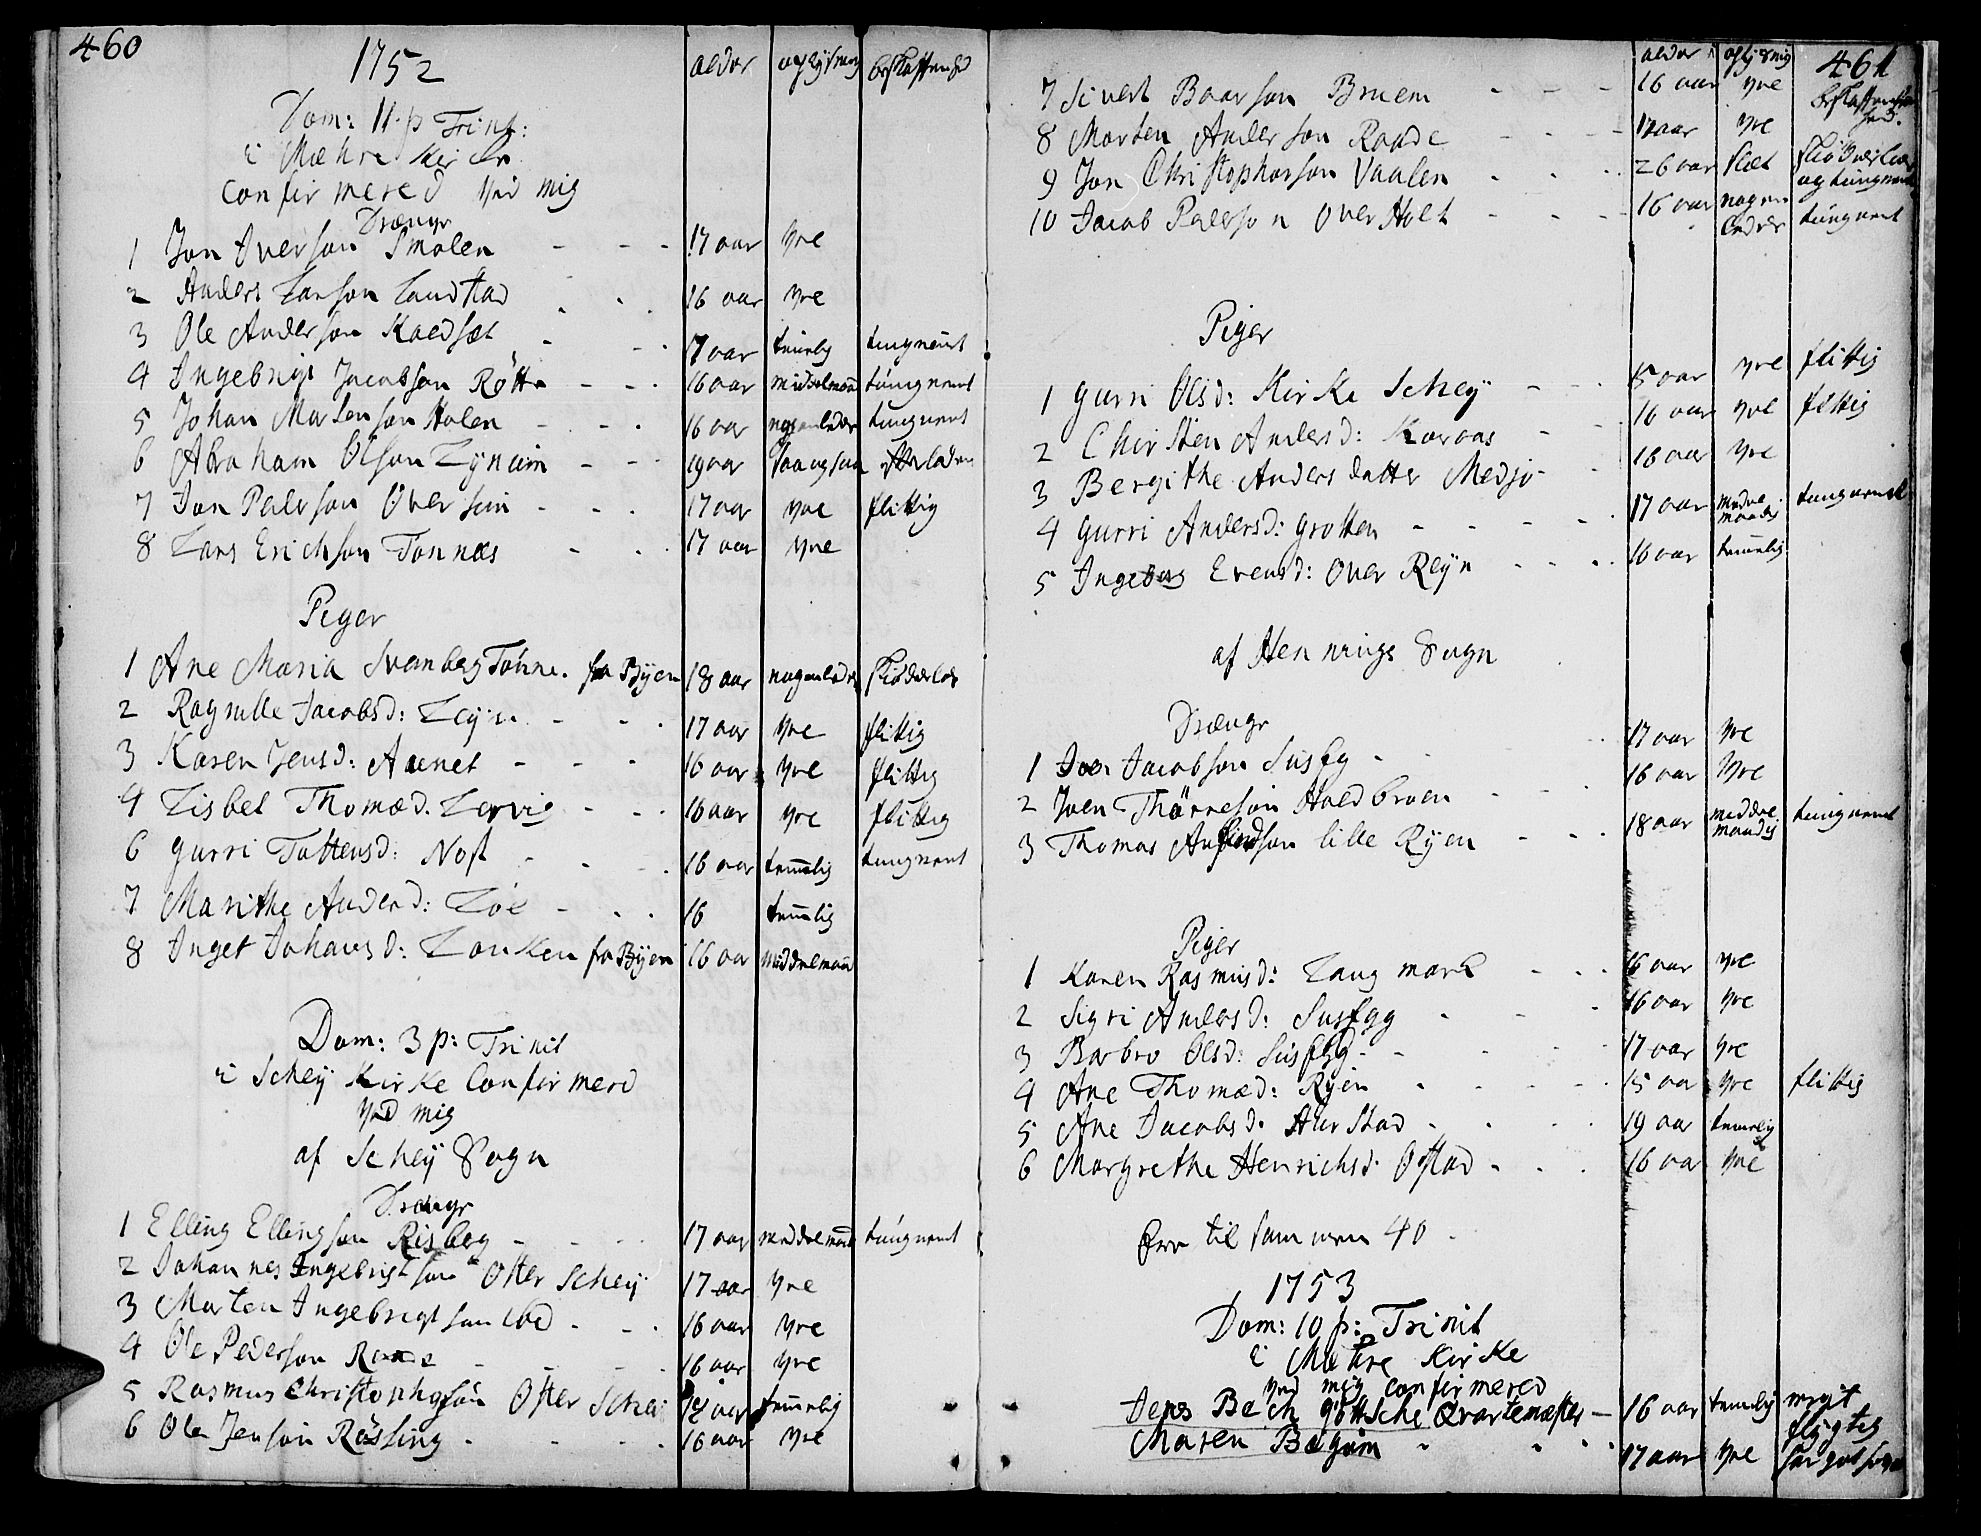 460
1752
alder oplysning beskaffenhed
Dom: 11. p Trinit:
i Mæhre Kirke
Confirmered Ved mig
Drænge
1 Jon Iverson Smolen - - - 17 aar Yre
2 Anders Larson Lundstad - - 16 aar Yre
3 Ole Anderson Kaldsæt - - 17 aar temelig tungnemt
4 Ingebrigt Jacobson Rötte - - - 16 aar middelmaad tungnemt
5 Johan Martenson Holen - - - 16 aar nogenleder tungnemt
6 Abraham Olson Lynum - - - 19 aar
7 Jon Pederson Over - - - 17 aar Yre flittig
8 Lars Erichson Tonnæs - - - 17 aar Yre
Piger
1 Ane Maria Svanberg Tönne. fra Byen 18 aar nogenledes skiödeslös
2 Ragnille Jacobsd: - - - 17 aar Yre flittig
3 Karen Jensd: Aunet - - - 16 aar Yre flittig
4 Lisbet Thomæd. - - 16 aar Yre flittig
6 Gurri Tostensd: - - - 16 aar temelig tungnemt
7 Marithe Andersd: - - - 16 temelig
8 Inget Johansd: Lonken fra Byen 16 aar middelmaad
Dom: 3 p: Trinit
i Schey Kirke Confirmered
Ved mig
af Schey Sogn
Drænge
1 Elling Ellingson Risberg - - - 17 aar meddelmaad tungnemt
2 Johannes Ingebrigtson Öster Schey 17 aar Yre
3 Morten Ingebrigtson - - - 16 aar Yre
4 Ole Pederson Raade - - - 16 aar Yre
5 Rasmus Christophersön Öster Schei aar temmelig
6 Ole Jensön Rössing - - - 16 aar Yre
461
alder oplysning
beskaffenhed.
7 Sivert Baarson Bruem - - - 16 aar Yre
8 Morten Anderson Raade - - - 17 aar Yre
9 Jon Christopherson Vaalen - - - 26 aar slæt skiödeslös
og tungnemt
10 Jacob Pederson Over Holt - - - 16 aar nogen tungnemt
ledes
Piger
1 Gurri Olsd: Kirke Schey - - 15 aar Yre flittig
2 Chirsten Andersd: Koraas - - 16 aar Yre flittig
3 Bergithe Andersdatter Medjo - - 16 aar Yre
4 Gurri Andersd: Grotten - - - 17 aar meddel tungnemt
maadig
5 Ingeborg Evensd: Over Reyn - - - 16 aar temmelig
af Hennings Sogn
Drænge
1 Iver Jacobson Susseg - - - 17 aar Yre
2 Joen Thörresön Holdbroen - - - 16 aar Yre
3 Thomas lille Ryen - - - 18 aar meddel tungnemt
maadig
Piger
1 Karen Rasmusd: Langmark - - - 16 aar Yre
2 Sigri Andersd: Susegg - - - 16 aar Yre
3 Barbro Olsd: Susegg - - - 17 aar Yre
4 Ane Thomæd: Ryen - - - 15 aar Yre flittig
5 Ane Jacobsd. Aurstad - - - 19 aar temelig
6 Margrethe Henrichsd. Ofstad - - - 16 aar Yre
Ere tilsammen 40
1753
Dom: 10 p: Trinit
i Mæhre Kirke
Ved mig confirmered
Jens Bech Göttsche Qvartemester - 16 aar temelig meget
flygtig
Maren Bagöin - - - 17 aar Yre